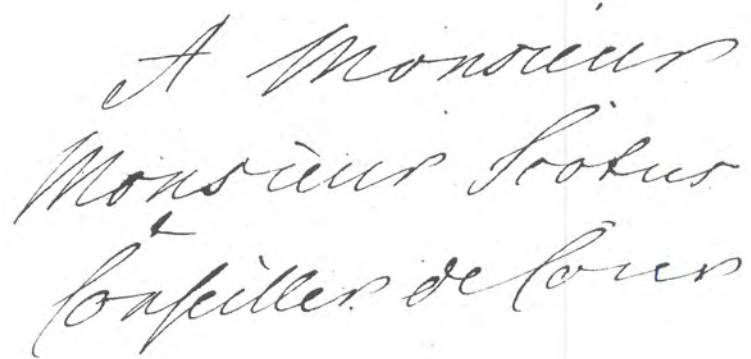 A Monsieur
Monsieur Scotus
Conseiller de Cour